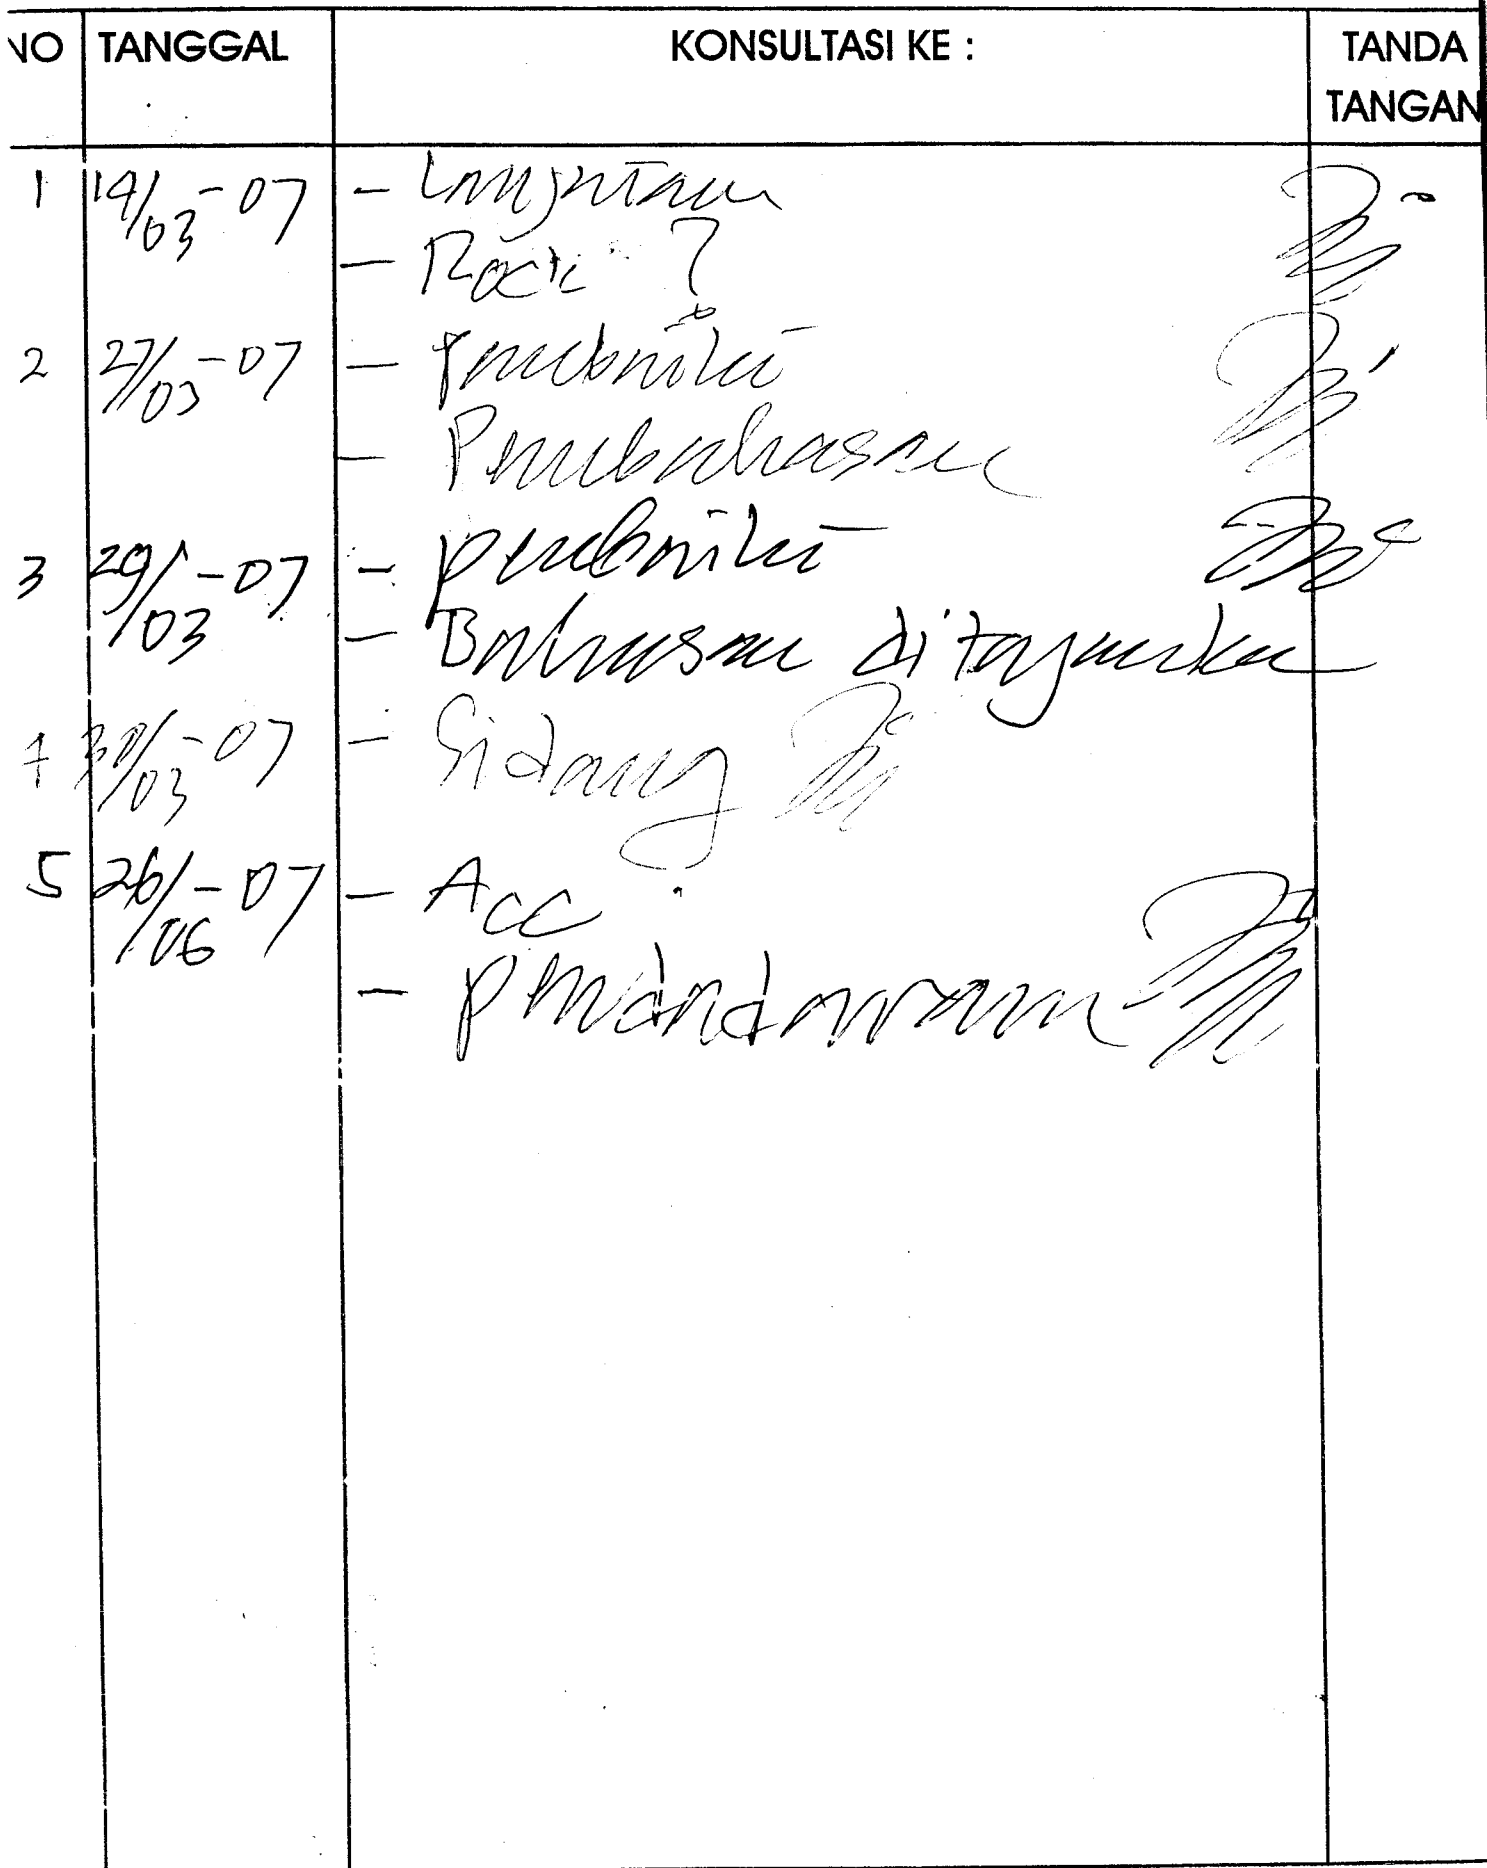 NO TANGGAL KONSULTASI KE : TANDA TANGAN
1 19/03-07 - Lanjutkan
- Rock ?
2 27/03-07 - perbaiki
- Pembahasan
3 29/03-07 - perbaiki
- Bahasan ditajamkan
4 30/03-07 - Sidang
5 26/06-07 - Acc
-